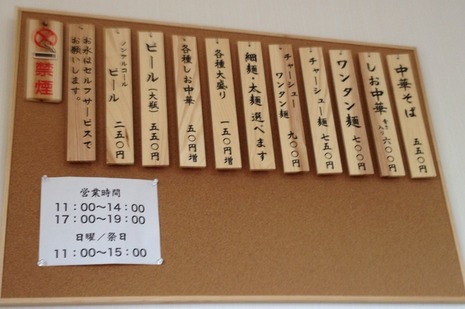 中華そば 五五〇円
しお中華 青さ入り 六〇〇円
ワンタン麺 七〇〇円
チャーシュー麺 七五〇円
チャーシューワンタン麺 九〇〇円
細麺・太麺 選べます
各種大盛り 一五〇円増
各種しお中華 五〇円増
ビール (大瓶) 五五〇円
ノンアルコールビール 二五〇円
お水はセルフサービスで
お願いします。
禁煙
営業時間
11:00〜14:00
17:00〜19:00
日曜／祭日
11:00〜15:00